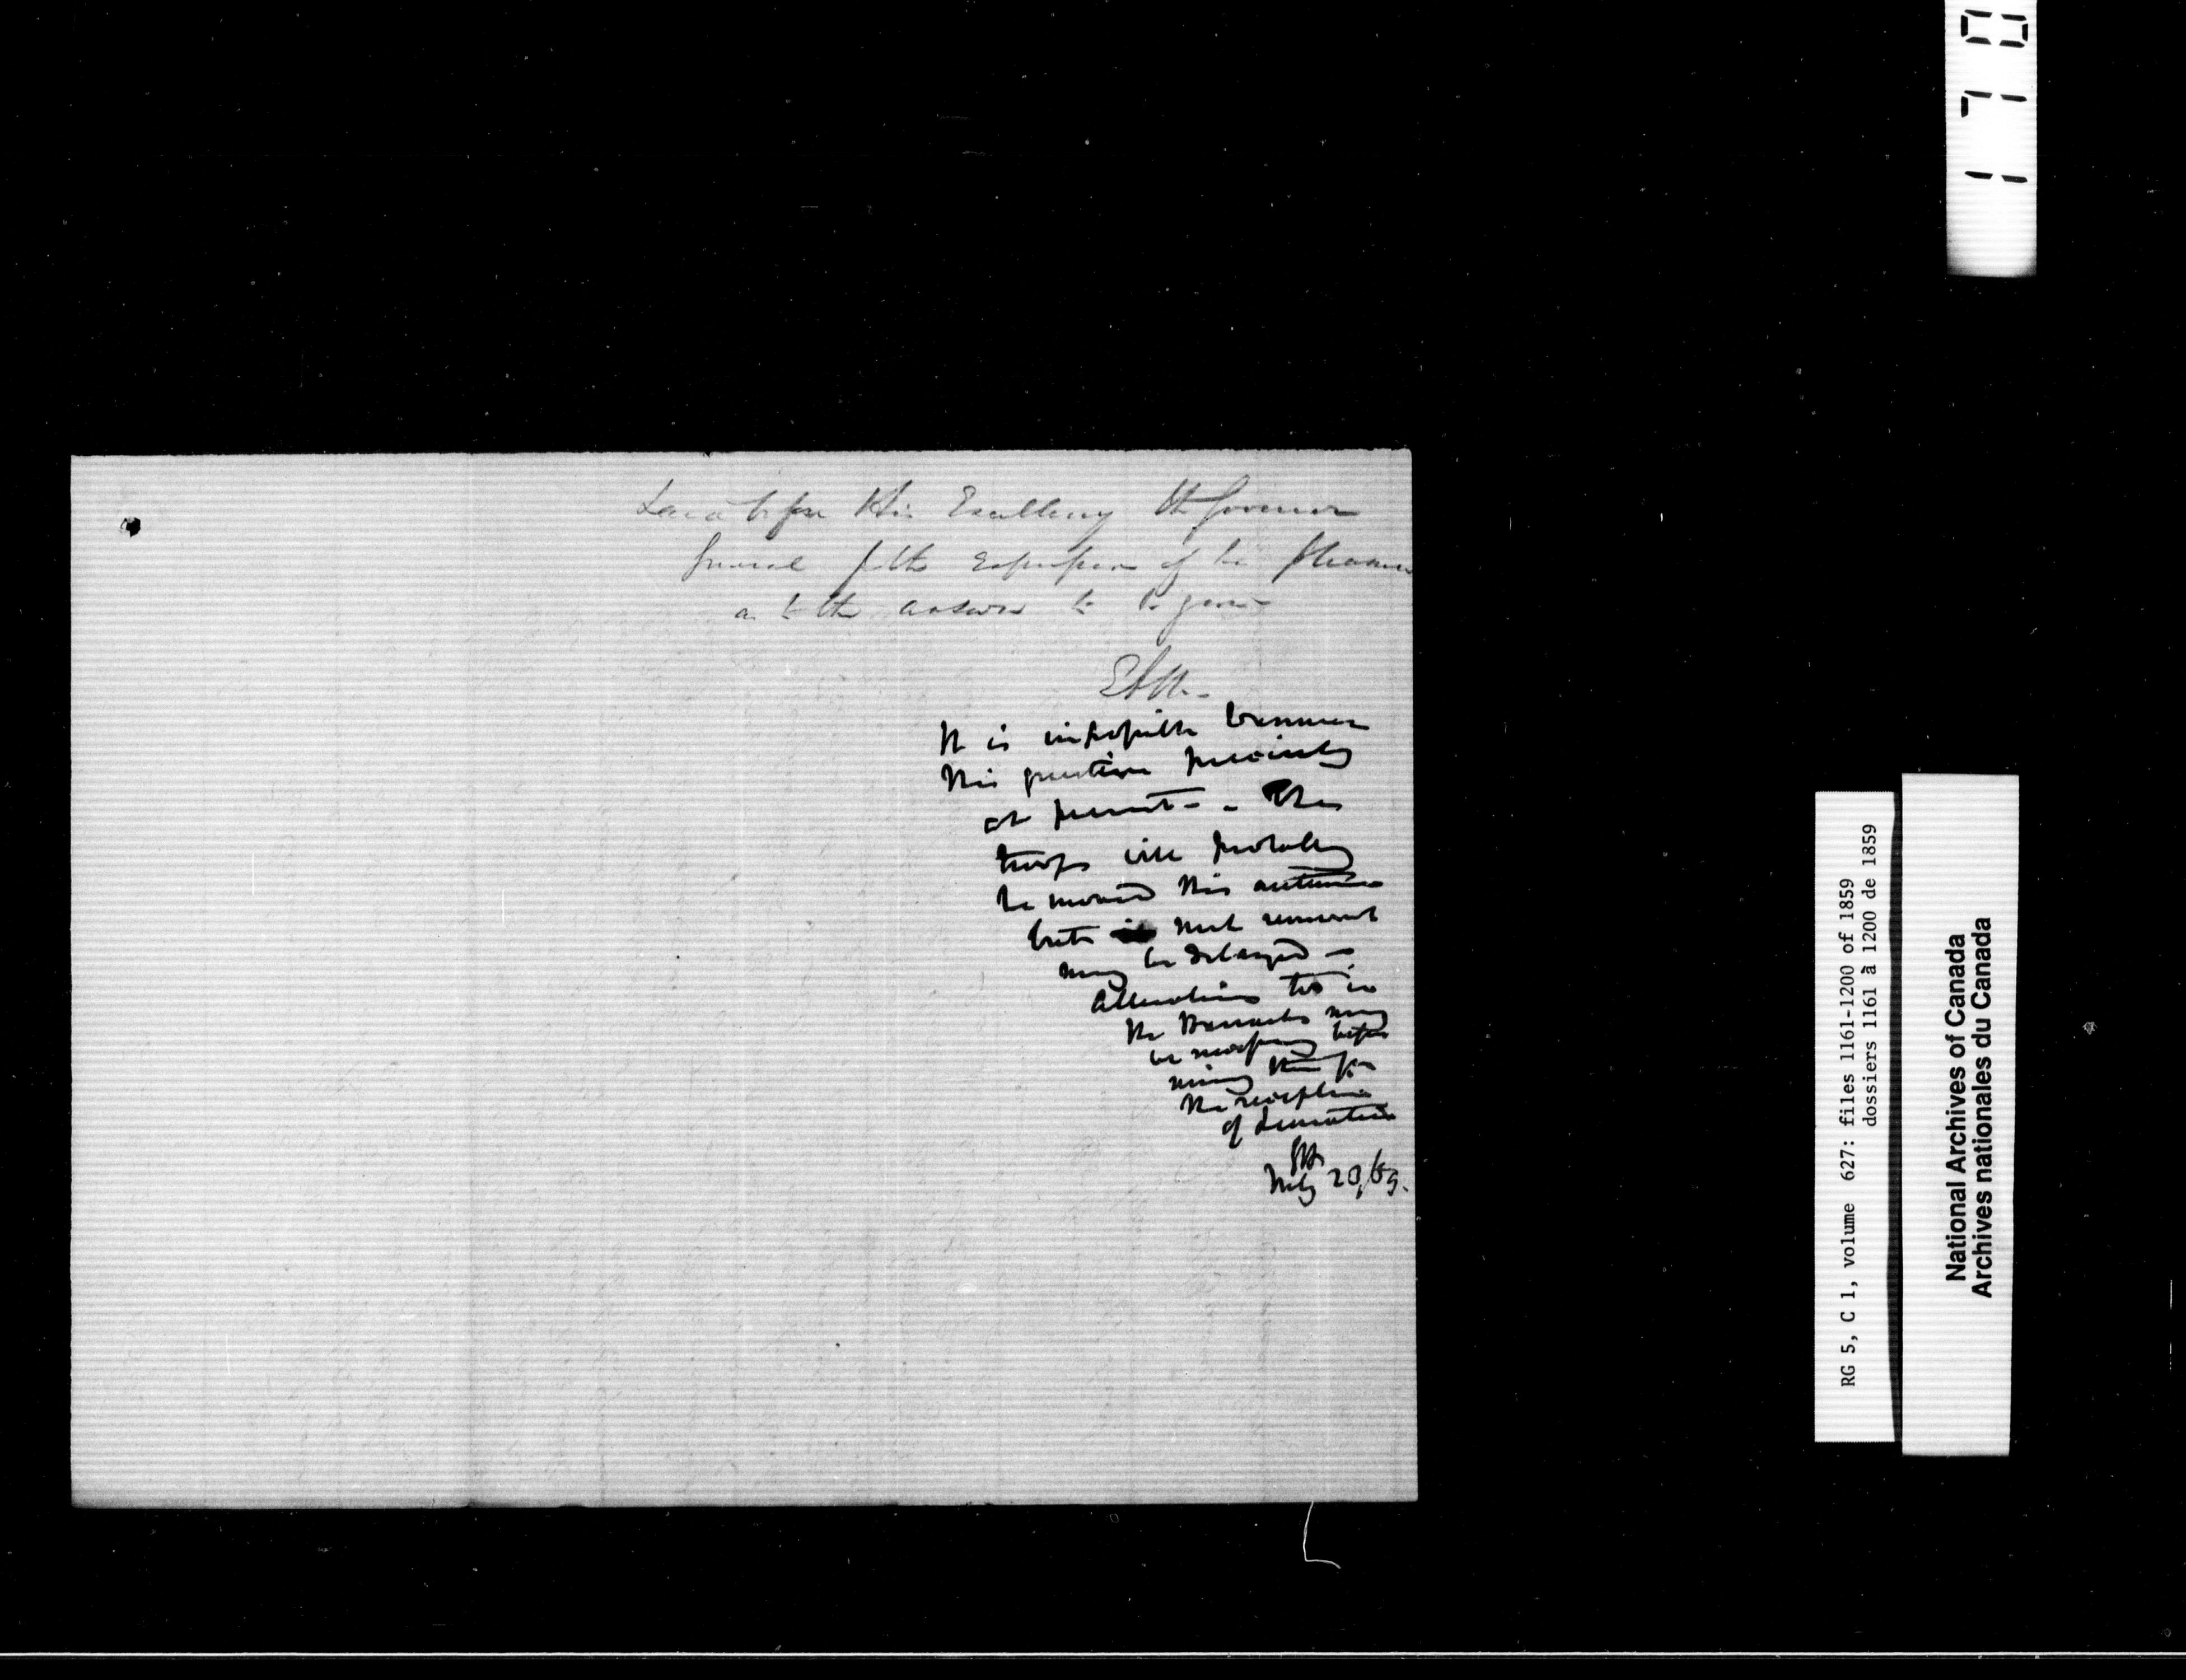 Laid before His Excellency the Governor
General for the expression of his pleasure
as to the answer to be given
EAM.
It is impossible to answer
this question precisely
at present - - The
troops will probably
be moved this autumn
but such removal
may be delayed -
Alterations too in
the Barracks may
be necessary before
using them for
the reception
of Lunatics
July 20,
170
RG 5, C 1, volume 627: files 1161-1200 of 1859
dossiers 1161 à 1200 de 1859
National Archives of Canada
Archives nationales du Canada